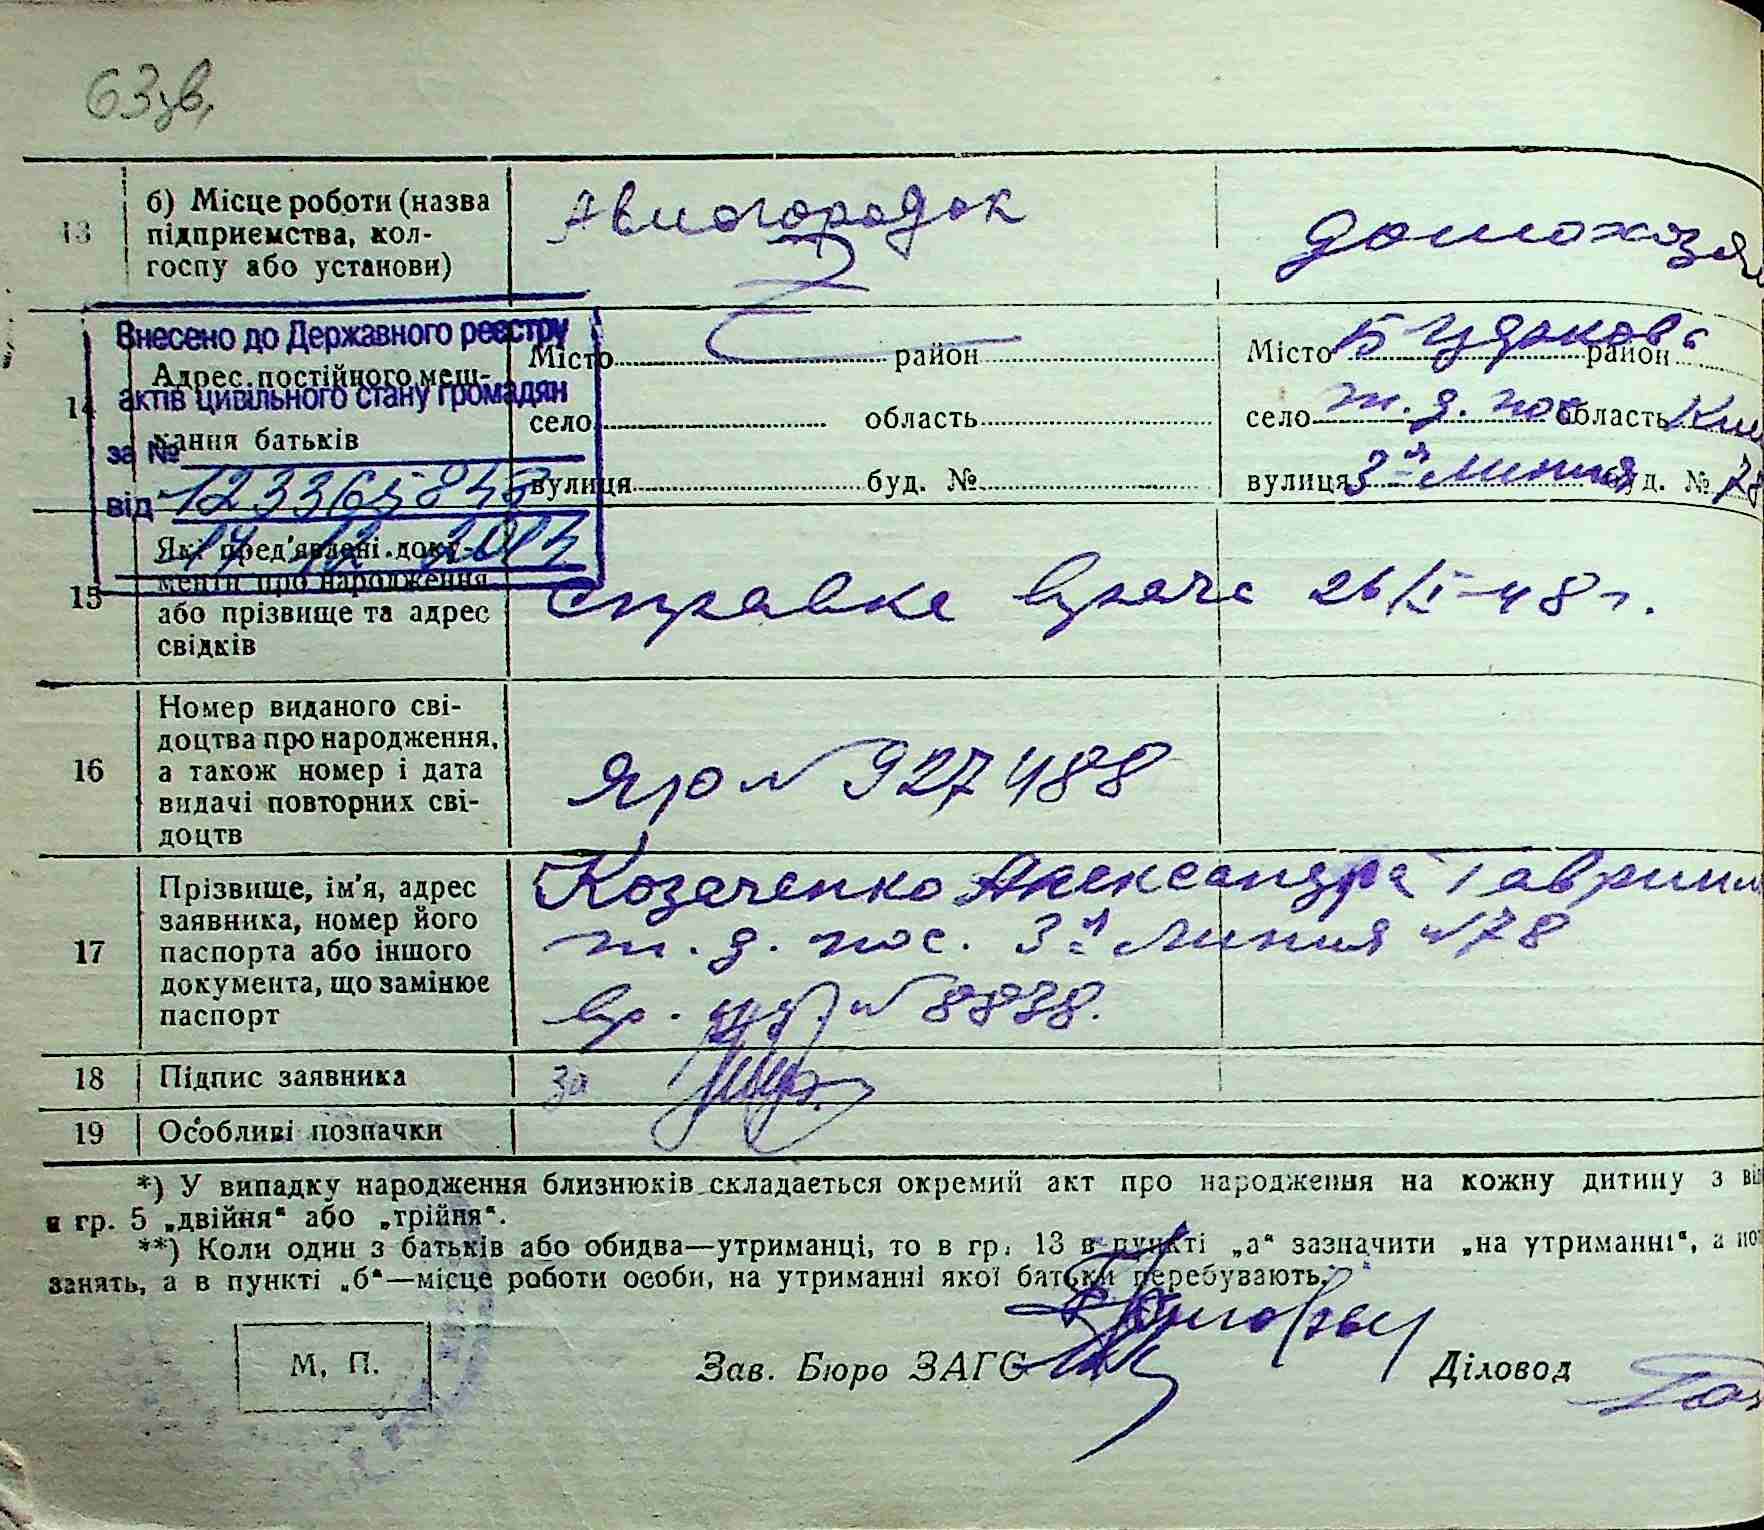 63зв,
13
б) Місце роботи (назва
підприємства, кол-
госпу або установи)
Авиогородок
домохозя
Внесено до Державного реєстру
актів цивільного стану громадян
за №
від
14
Адрес постійного меш-
кання батьків
Місто район
село область
вулиця буд. №
Місто район
село ж. д. пос область Ки
вулиця 3-я Линия буд. № 78
15
Які пред'явлені доку-
менти про народження
або прізвище та адрес
свідків
Справка врача 26/I-48 г.
16
Номер виданого сві-
доцтва про народження,
а також номер і дата
видачі повторних сві-
доцтв
ЯЮ № 927488
17
Прізвище, ім'я, адрес
заявника, номер його
паспорта або іншого
документа, що замінює
паспорт
Козаченко Александра Гаврил
ж. д. пос. 3-я Линия № 78
вр. уд № 8838.
18
Підпис заявника
за
19
Особливі позначки
*) У випадку народження близнюків складається окремий акт про народження на кожну дитину з від
в гр. 5 „двійня“ або „трійня“.
**) Коли один з батьків або обидва—утриманці, то в гр. 13 в пункті „а“ зазначити „на утриманні“, а
занять, а в пункті „б“—місце роботи особи, на утриманні якої батьки перебувають.
М. П.
Зав. Бюро ЗАГС
Діловод